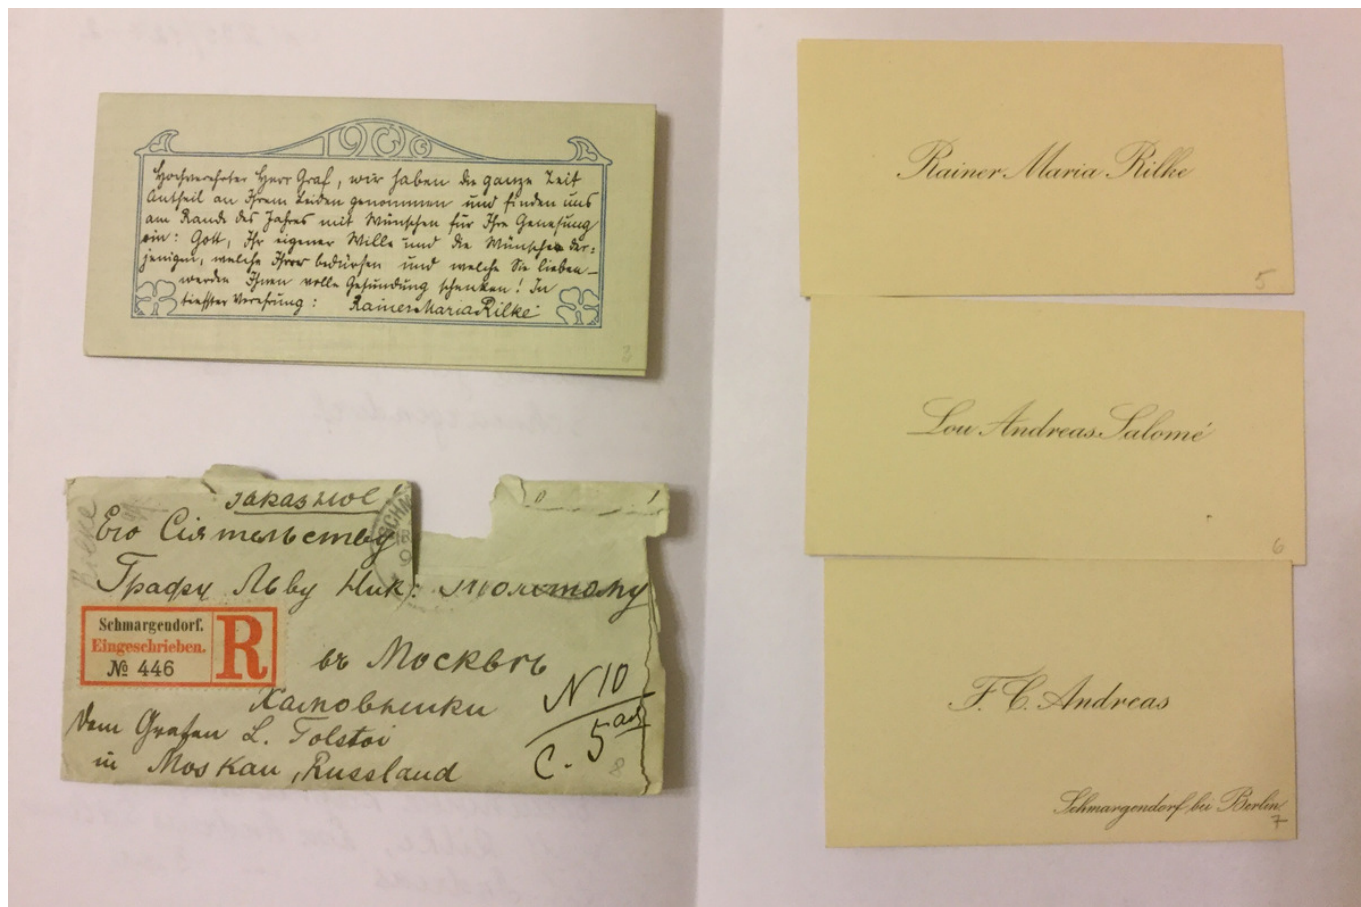 1900
Hochverehrter Herr Graf, wir haben die ganze Zeit
Antheil an Ihrem Leiden genommen und finden uns
am Rande des Jahres mit Wünschen für Ihre Genesung
ein: Gott, Ihr eigener Wille und die Wünsche der:
jenigen, welche Ihrer bedürfen und welche Sie lieben—
werden Ihnen volle Gesundung schenken! In
tiefster Verehrung: Rainer Maria Rilke
заказное!
Его Сіятельству
Графу Льву Ник: Толстому
Schmargendorf.
Eingeschrieben.
№ 446
R
въ Москвѣ
Хамовники
N 10
C. 5
Dem Grafen L. Tolstoi
in Moskau, Russland
8
Rainer Maria Rilke
5
Lou Andreas-Salomé
6
F. C. Andreas
Schmargendorf bei Berlin
7